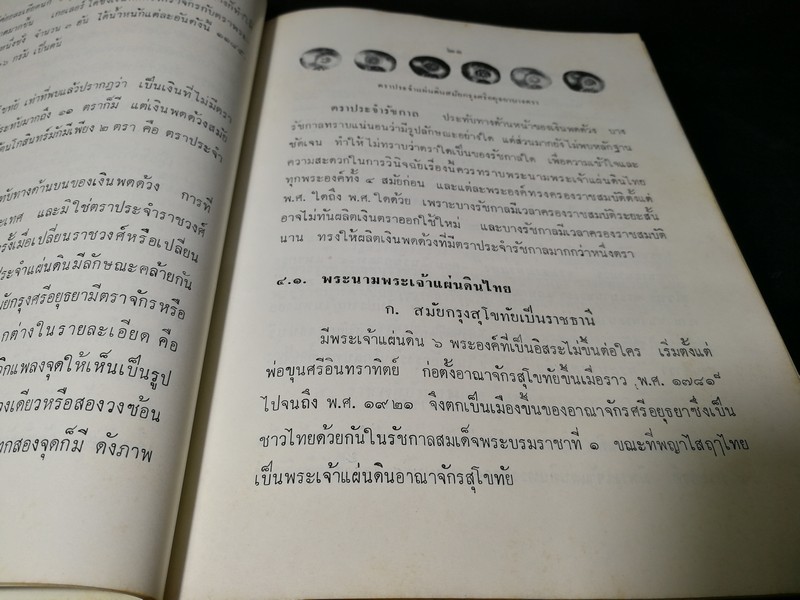 ๑๑ ตราก็มี แต่เงินพดด้วงสมัย
๒ ตรา คือ ตราประจำ
ทางด้านบนของเงินพดด้วง การที่
และมิใช่ตราประจำราชวงศ์
เมื่อเปลี่ยนราชวงศ์หรือเปลี่ยน
ประจำแผ่นดินมีลักษณะคล้ายกัน
กรุงศรีอยุธยามีตราจักรหรือ
ต่างในรายละเอียด คือ
จุดให้เห็นเป็นรูป
วงเดียวหรือสองวงซ้อน
สองจุดก็มี ดังภาพ
๒๑
ตราประจำแผ่นดินสมัยกรุงศรีอยุธยาบางตรา
ตราประจำรัชกาล ประทับทางด้านหน้าของเงินพดด้วง บาง
รัชกาลทราบแน่นอนว่ามีรูปลักษณะอย่างใด แต่ส่วนมากยังไม่พบหลักฐาน
ชัดเจน ทำให้ไม่ทราบว่าตราใดเป็นของรัชกาลใด เพื่อความเข้าใจและ
ความสะดวกในการวินิจฉัยเรื่องนี้ควรทราบพระนามพระเจ้าแผ่นดินไทย
ทุกพระองค์ทั้ง ๔ สมัยก่อน และแต่ละพระองค์ทรงครองราชสมบัติตั้งแต่
พ.ศ. ใดถึง พ.ศ. ใดด้วย เพราะบางรัชกาลมีเวลาครองราชสมบัติระยะสั้น
อาจไม่ทันผลิตเงินตราออกใช้ใหม่ และบางรัชกาลมีเวลาครองราชสมบัติ
นาน ทรงให้ผลิตเงินพดด้วงที่มีตราประจำรัชกาลมากกว่าหนึ่งตรา
๔.๑. พระนามพระเจ้าแผ่นดินไทย
ก. สมัยกรุงสุโขทัยเป็นราชธานี
มีพระเจ้าแผ่นดิน ๖ พระองค์ที่เป็นอิสระไม่ขึ้นต่อใคร เริ่มตั้งแต่
พ่อขุนศรีอินทราทิตย์ ก่อตั้งอาณาจักรสุโขทัยขึ้นเมื่อราว พ.ศ. ๑๗๘๑
ไปจนถึง พ.ศ. ๑๙๒๑ จึงตกเป็นเมืองขึ้นของอาณาจักรศรีอยุธยาซึ่งเป็น
ชาวไทยด้วยกันในรัชกาลสมเด็จพระบรมราชาที่ ๑ ขณะที่พญาไสฤๅไทย
เป็นพระเจ้าแผ่นดินอาณาจักรสุโขทัย